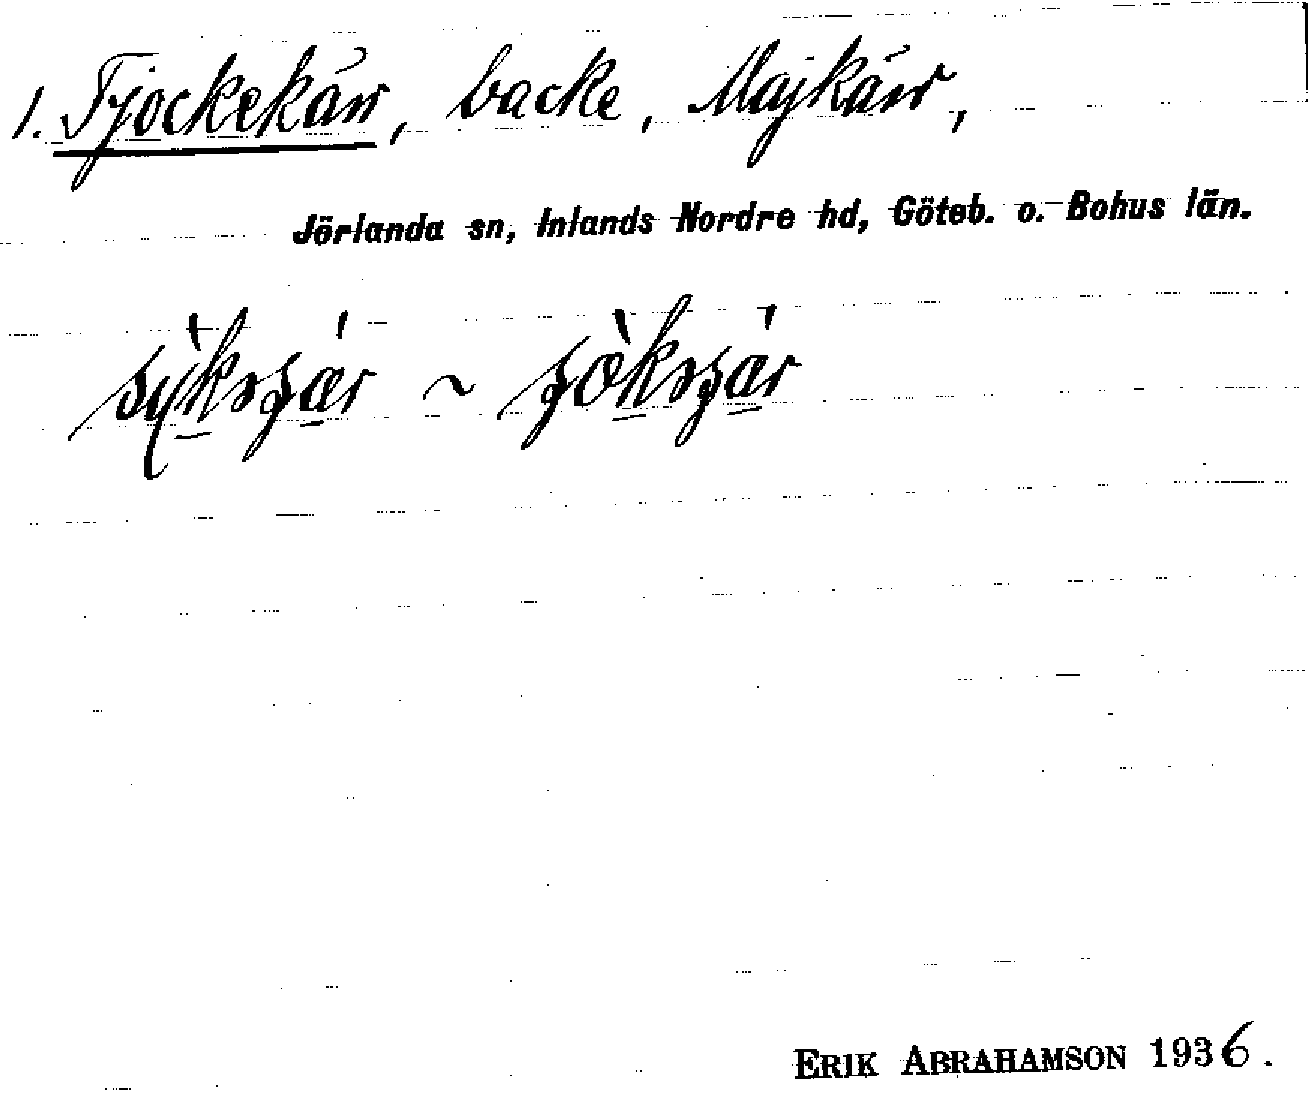 1. Tjockekärr, backe, Majkärr,
Jörlanda sn, Inlands Nordre hd, Göteb. o. Bohus län.
ERIK ABRAHAMSON 1936.